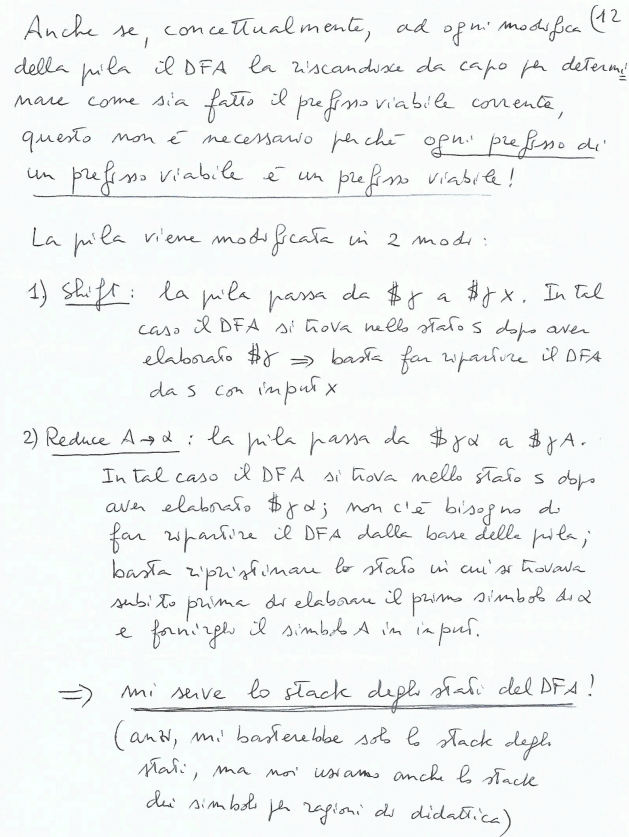 Anche se, concettualmente, ad ogni modifica (12
della pila il DFA la riscandisce da capo per determi
nare come sia fatto il prefisso viabile corrente,
questo non è necessario perché ogni prefisso di
un prefisso viabile è un prefisso viabile!
La pila viene modificata in 2 modi:
1) Shift: la pila passa da $γ a $γx. In tal
caso il DFA si trova nello stato s dopo aver
elaborato $γ ⇒ basta far ripartire il DFA
da s con input x
2) Reduce A→α: la pila passa da $γα a $γA.
In tal caso il DFA si trova nello stato s dopo
aver elaborato $γα; non c'è bisogno di
far ripartire il DFA dalla base della pila;
basta ripristinare lo stato in cui si trovava
subito prima di elaborare il primo simbolo di α
e fornirgli il simbolo A in input.
⇒ mi serve lo stack degli stati del DFA!
(anzi, mi basterebbe solo lo stack degli
stati, ma noi usiamo anche lo stack
dei simboli per ragioni di didattica)